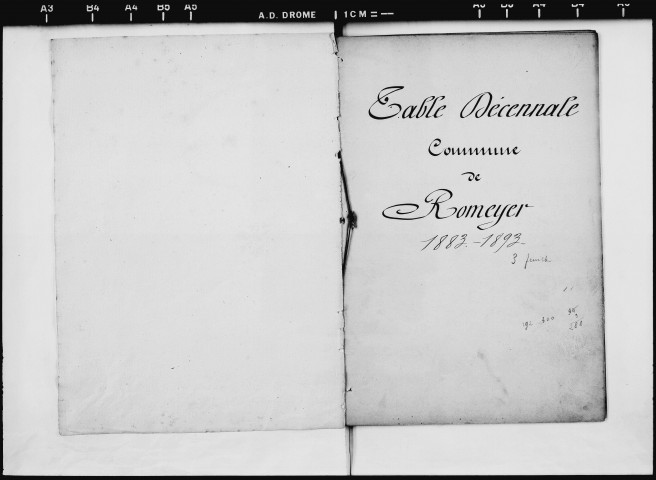 A3 B4 A4 B5 A5 A.D. DROME 1CM = A5 B5 A4 B4 A3
Table Décennale
Commune
de
Romeyer
1883-1893
3